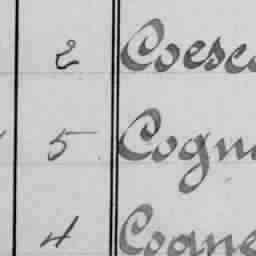 2 Coesc
5 Cogn
4 Cogne